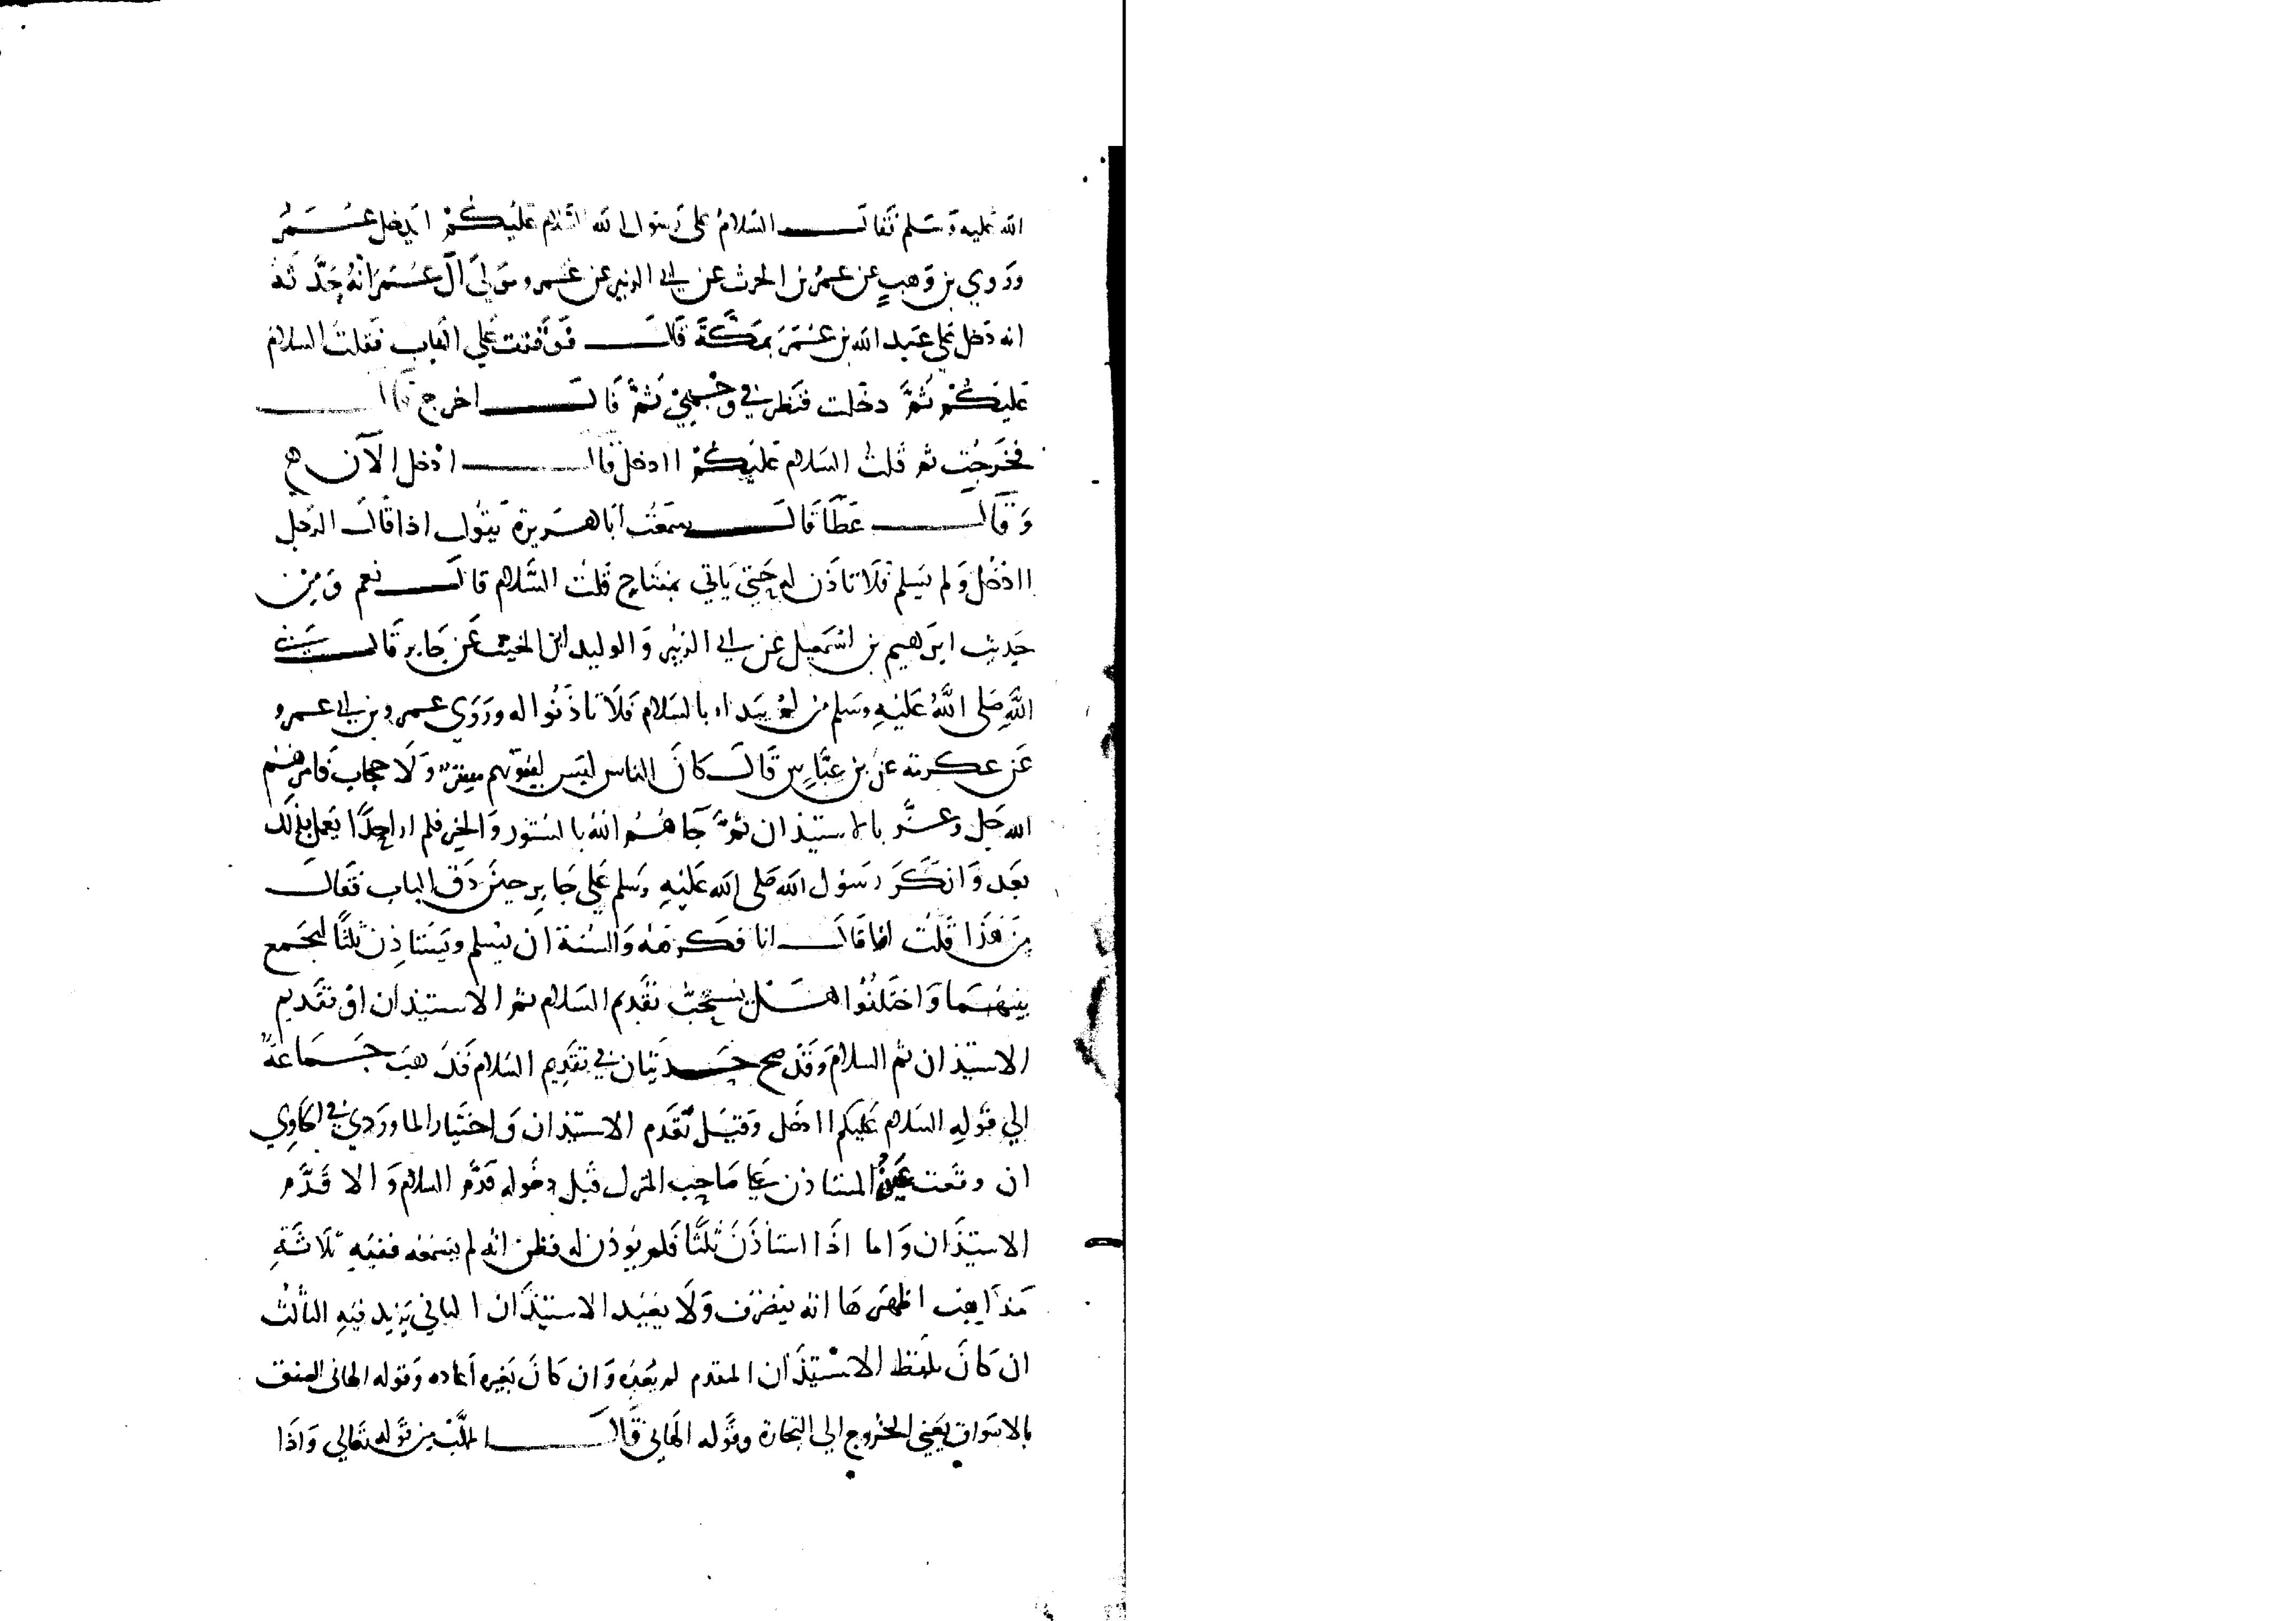 الله عليه وسلم فقال السلام على رسول الله السلام عليكم ايدخل عمر
وروي بن وهب عن عمرو بن الحرث عن ابي الزبير عن عمرو مولي آل عمر انه حدثه
انه دخل علي عبد الله بن عمر بمكة قال فوقفت علي الباب فقلت السلام
عليكم ثم دخلت فنظر في وجهي ثم قال اخرج قال
فخرجت ثم قلت السلام عليكم اادخل قال ادخل الآن ه
وقال عطا قال سمعت ابا هريرة يقول اذا قال الرجل
اادخل ولم يسلم فلا تاذن له حتي ياتي بمفتاح قلت السلام قال نعم ومن
حديث ابرهيم بن اسمعيل عن ابي الزبير والوليد ابن المغيث عن جابر قال
الله صلى الله عليه وسلم من لم يبدا بالسلام فلا تاذنوا له وروي عمرو بن ابي عمرو
عن عكرمة عن بن عباس قال كان الناس ليس لبيوتهم ستر ولا حجاب فامرهم
الله جل وعز بالاستيذان ثم جاهم الله بالستور والخير فلم ار احدا يعمل بذلك
بعد وانكر رسول الله صلى الله عليه وسلم علي جابر حين دق الباب فقال
من هذا قلت انا قال انا فكرهه والسنة ان يسلم ويستاذن ثلثا ليجمع
بينهما واختلفوا هل يستحب تقديم السلام ثم الاستيذان او تقديم
الاستيذان ثم السلام وقد صح حديثان في تقديم السلام فذهب جماعة
الي قوله السلام عليكم اادخل وقيل تقدم الاستيذان واختيار الماوردي في الحاوي
ان وقعت عين المستاذن علي صاحب المنزل قبل دخوله قدم السلام والا قدم
الاستيذان واما اذا استاذن ثلثا فلم يوذن له فظن انه لم يسمعه ففيه ثلاثة
مذاهب اظهرها انه ينصرف ولا يعيد الاستيذان الثاني يزيد فيه الثالث
ان كان بلفظ الاستيذان المتقدم لم يعده وان كان بغيره اعاده وقوله الهاني الصفق
بالاسواق يعني الخروج الي التجارة وقوله الهاني قال المهلب من قوله تعالي واذا